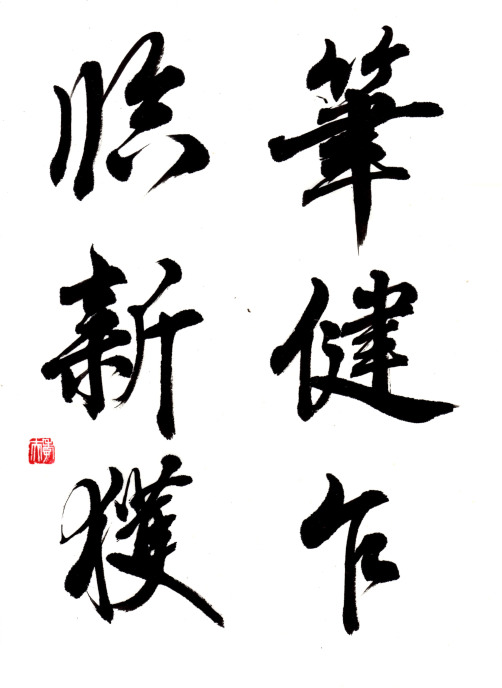 筆健乍
臨新獲